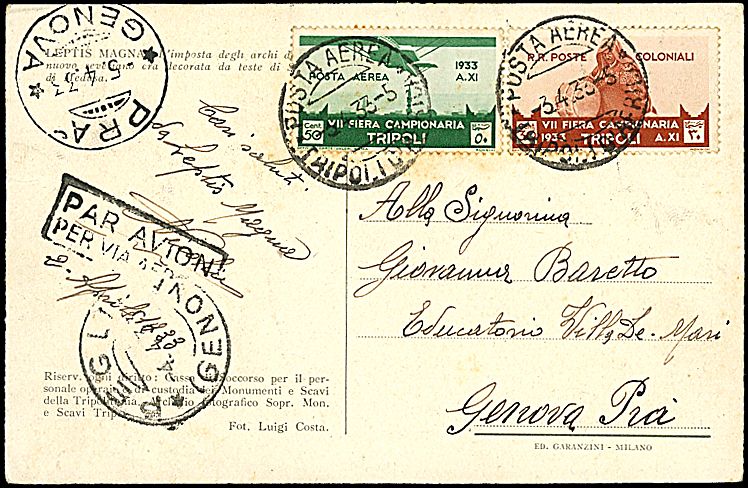 LEPTIS MAGNA - L'imposta degli archi d
nuovo severiano era decorata da teste di
di Medusa.
GENOVA
PRA
POSTA AEREA
1933
A. XI
CENT. 50
VII FIERA CAMPIONARIA
TRIPOLI
POSTA AEREA
TRIPOLI
R.R. POSTE COLONIALI
VII FIERA CAMPIONARIA
1933 TRIPOLI A. XI
POSTA AEREA
3.4.33
Cari saluti
da Leptis Magna
2 Aprile 1933
PAR AVION
PER VIA AEREA
GENOVA
Alla Signorina
Giovanna Baretto
Educatorio Villa De-Mari
Genova Prà
Riserv. ogni diritto: Cassa di Soccorso per il per-
sonale operaio e di custodia dei Monumenti e Scavi
della Tripolitania. Archivio fotografico Sopr. Mon.
e Scavi Trip
Fot. Luigi Costa.
ED. GARANZINI - MILANO